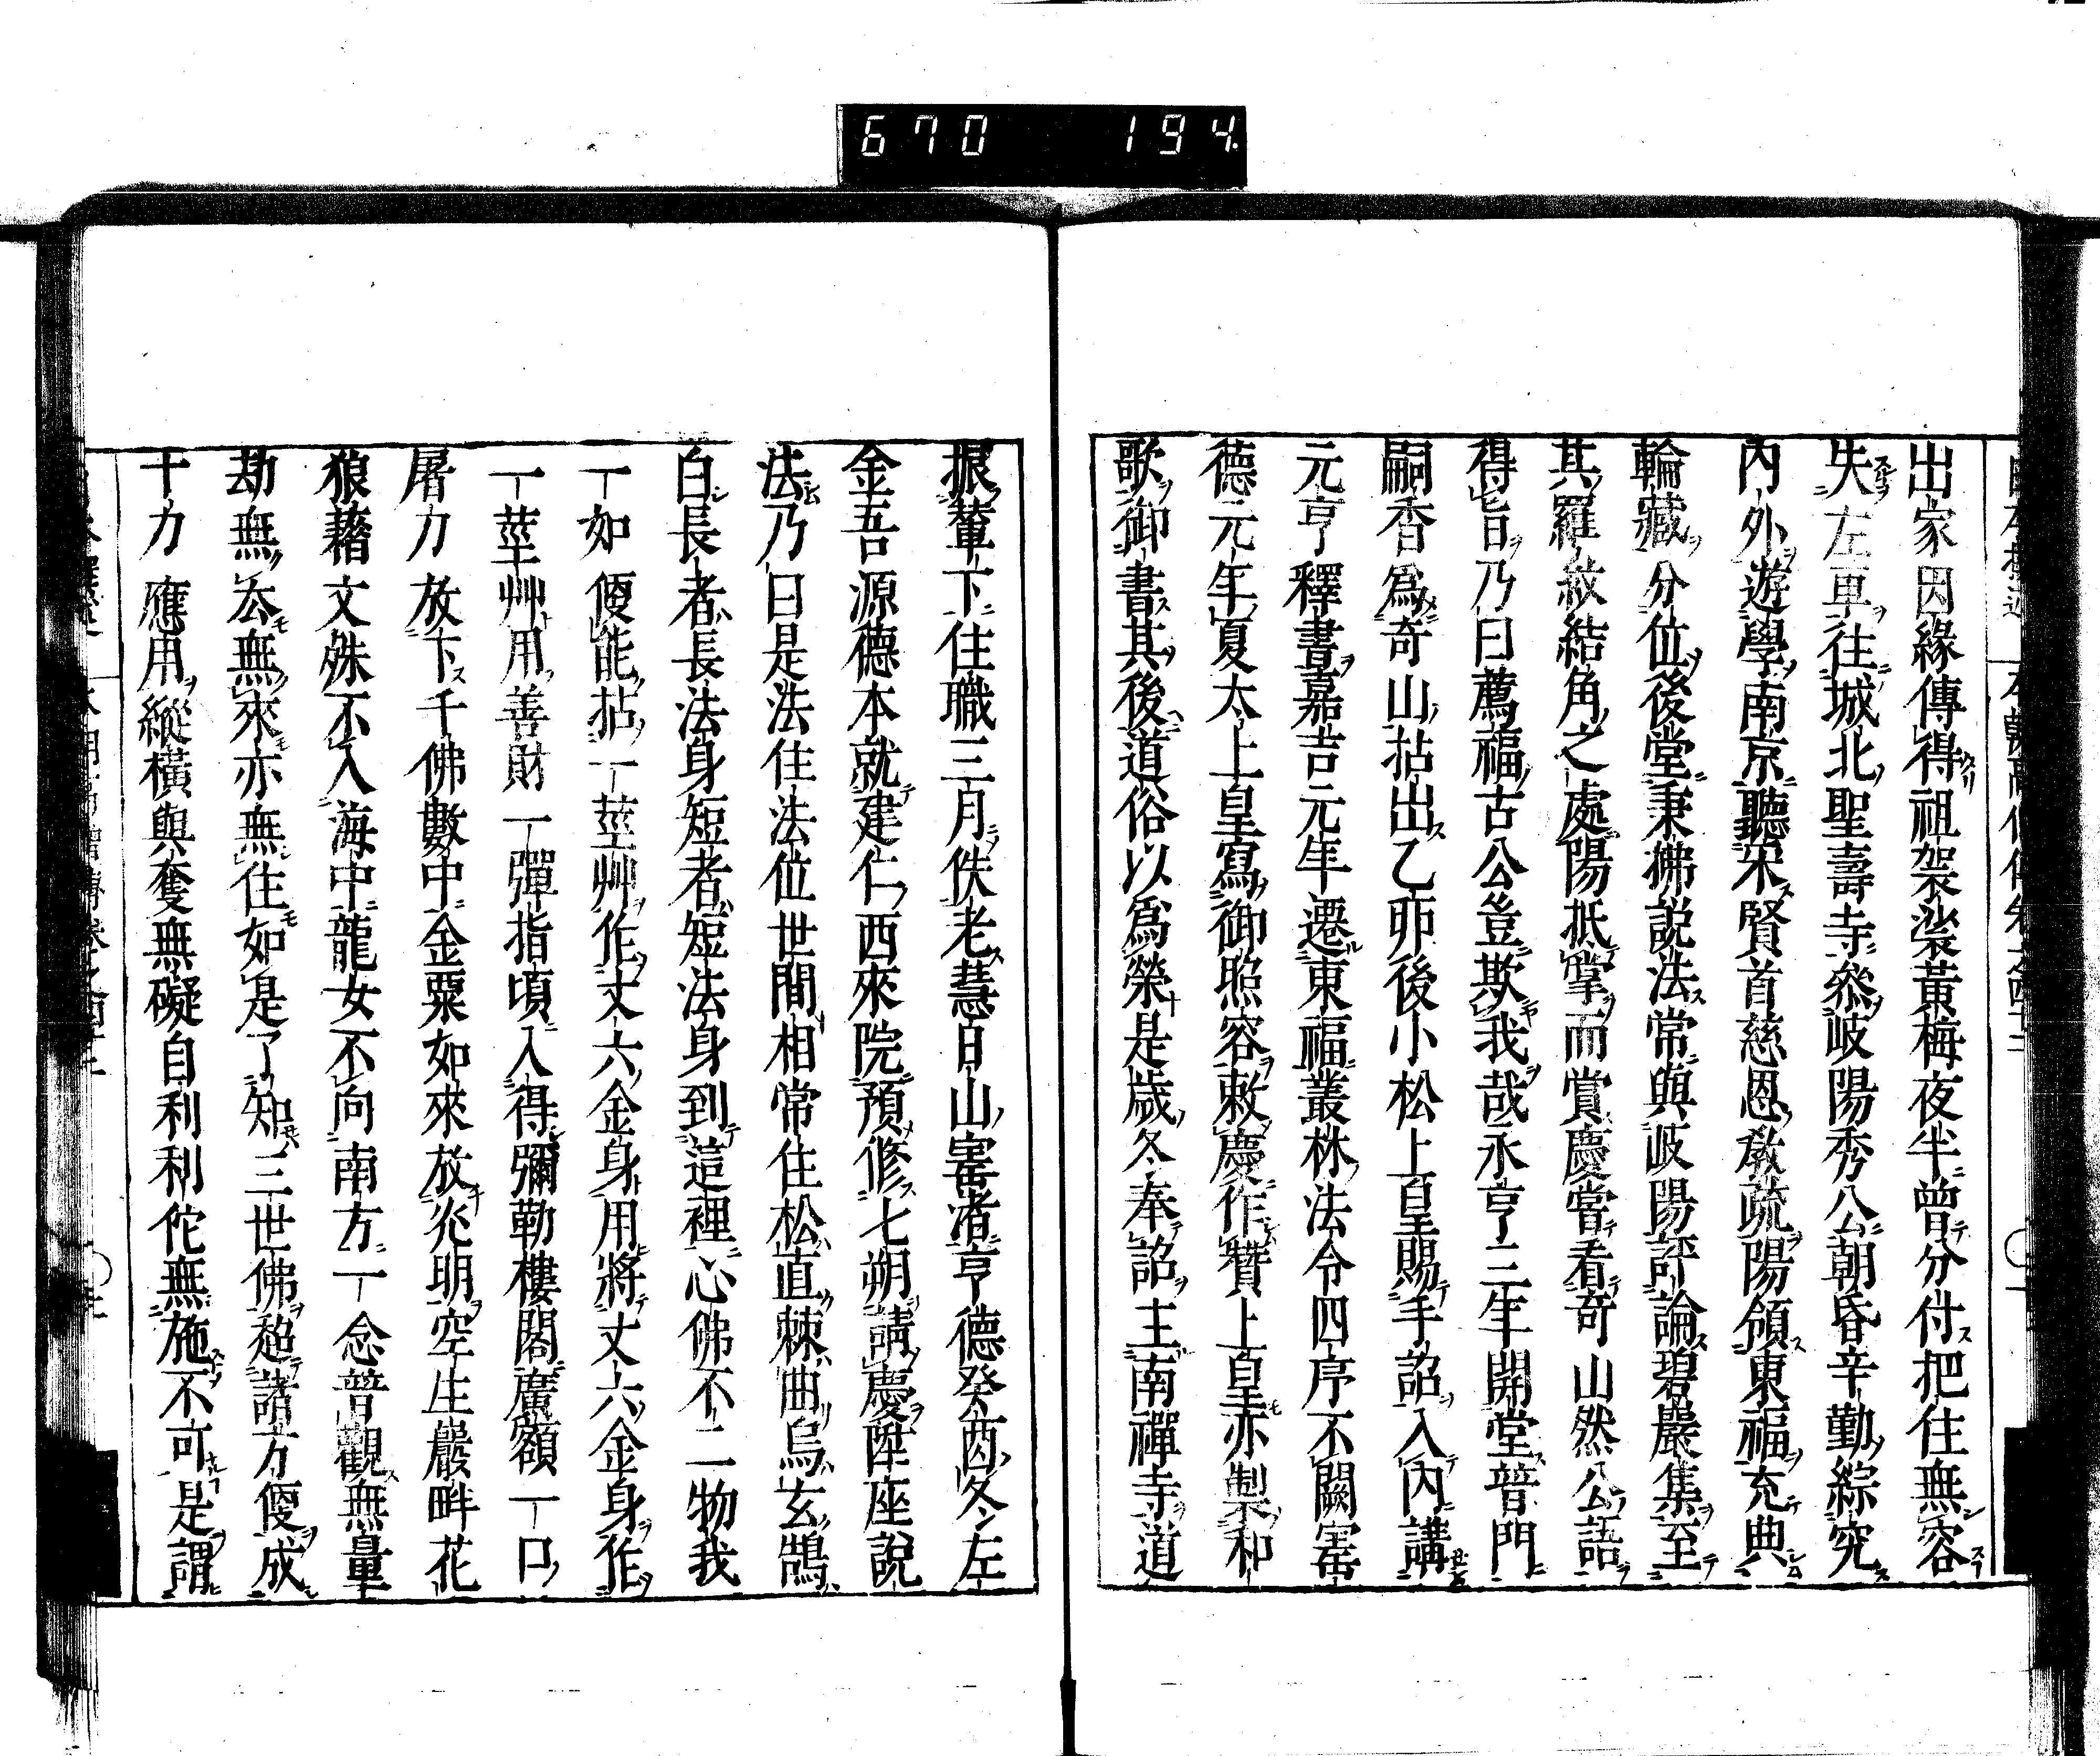 670 194
出家因緣傳得祖袈裟黃梅夜半曾分付把住無容
失左卓往城北聖壽寺參岐陽秀公朝昏辛勤綜究
內外遊學南京聽宋賢首慈恩敎疏陽領東福充典
輪藏分位後堂秉拂說法常與岐陽評論碧巖集至
其羅紋結角之處陽抵掌而賞慶嘗看奇山然公語
得旨乃曰薦福古公豈欺我哉永亨三年開堂普門
嗣香爲奇山拈出乙卯後小松上皇賜手詔入內講
元亨釋書嘉吉元年遷東福叢林法令四序不闕寶
德元年夏太上皇寫御照容敕慶作贊上皇亦製和
歌御書其後道俗以爲榮是歲冬奉詔主南禪寺道
振輦下住職三月佚老慧日山寶渚亭德癸酉冬左
金吾源德本就建仁西來院預修七朔請慶陞座說
法乃曰是法住法位世間相常住松直棘曲烏玄鵠
白長者長法身短者短法身到這裡心佛不二物我
一如便能拈一莖艸作丈六金身用將丈六金身作
一莖艸用善財一彈指頃入得彌勒樓閣廣額一口
屠刀放下千佛數中金粟如來放光明空生巖畔花
狼藉文殊不入海中龍女不向南方一念普觀無量
劫無去無來亦無住如是了知三世佛超諸方便成
十力應用縱橫與奪無礙自利利佗無施不可是謂